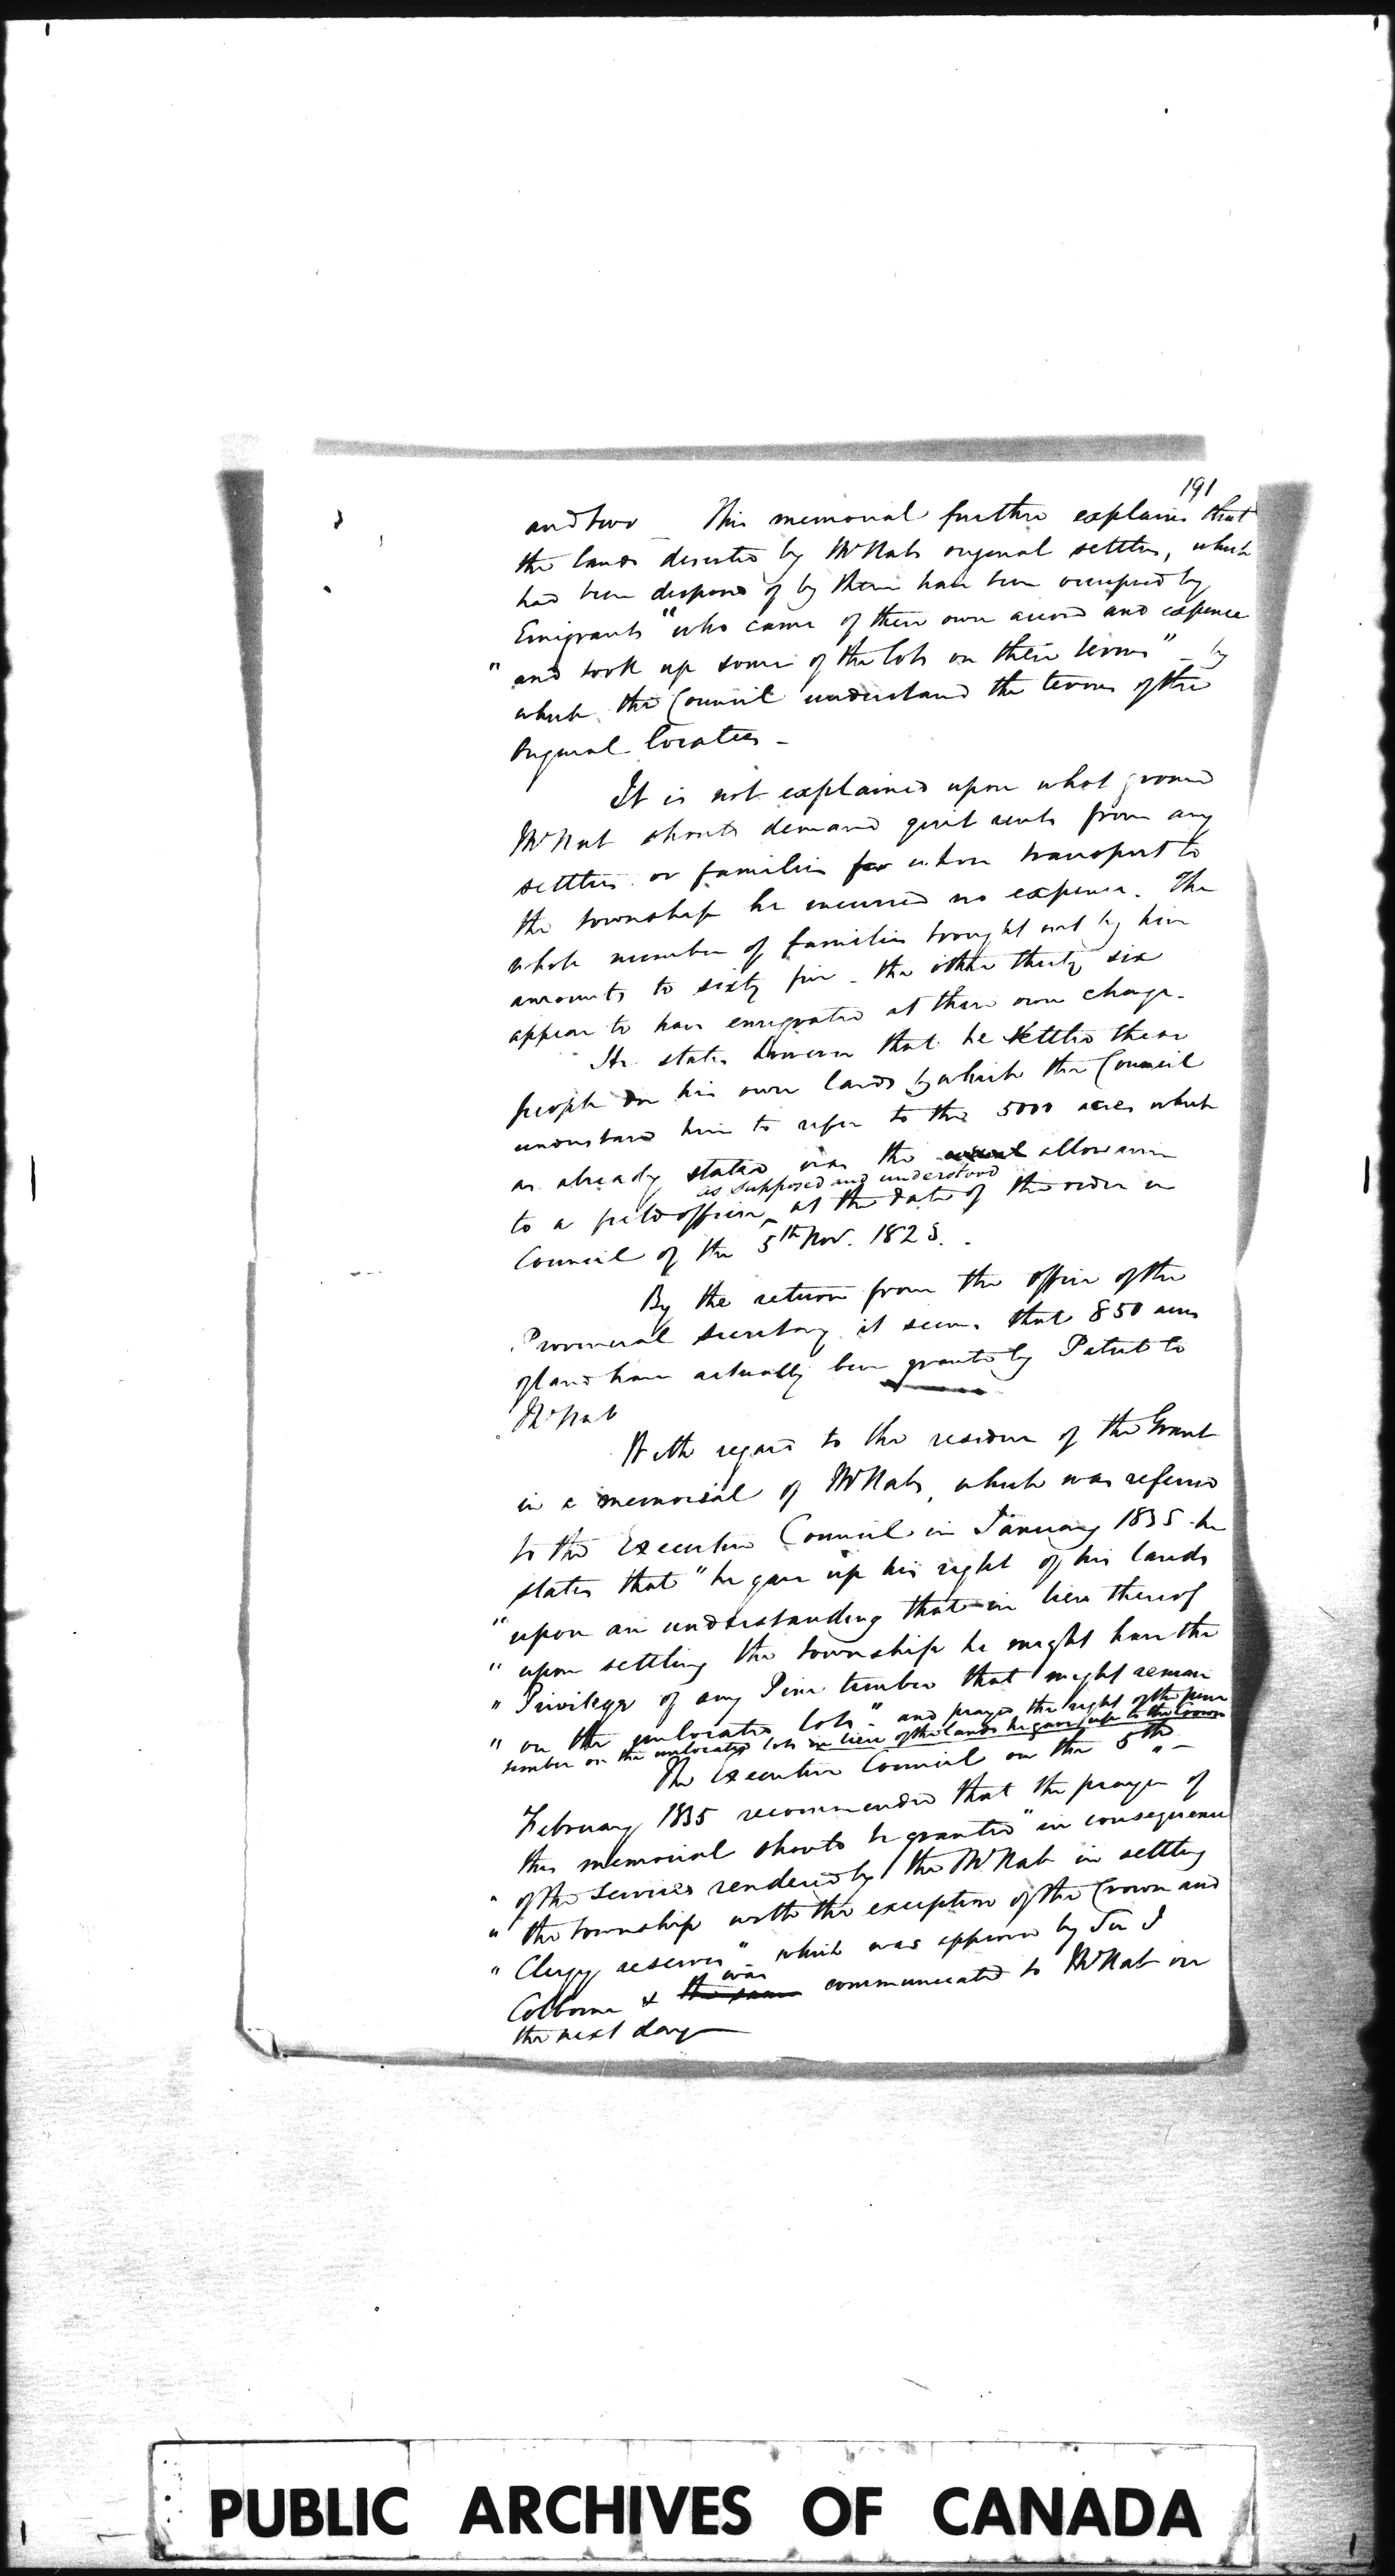 191
and two _ This memorial further explains that
the lands deserted by McNabs original settlers, which
had been disposed of by them have been occupied by
Emigrants "who came of their own accord and expence
" and took up some of the lots on their terms" _ by
which the Council understand the terms of the
Original locatees _
It is not explained upon what ground
McNab should demand quit rents from any
settlers or families for whose transport to
the township he incurred no expense. The
whole number of families brought out by him
amounts to sixty five _ the other thirty six
appear to have emigrated at their own charge.
He states however that he settled these
people on his own lands by which the Council
understand him to refer to the 5000 acres which
as already stated was the usual allowance
as supposed and understood
to a field officer at the date of the order in
Council of the 5th Nov. 1823.
By the return from the Office of the
Provincial Secretary it seems that 850 acres
of land have actually been granted by Patent to
McNab
With regard to the residue of the Grant
in a memorial of McNabs, which was referred
to the Executive Council in January 1835 he
states that "he gave up his right of his lands
" upon an understanding that in lieu thereof
" upon settling the township he might have the
" Privilege of any Pine timber that might remain
" on the unlocated lots." and prays the right of the pine
timber on the unlocated lots in lieu of the lands he gave up to the Crown
The Executive Council on the 5th _
February 1835 recommended that the prayer of
this memorial should be granted "in consequence
" of the Services rendered by the McNab in settling
" the township with the exception of the Crown and
" Clergy reserves" which was approved by Sir J
Colborne & the same was communicated to McNab on
the next day
PUBLIC ARCHIVES OF CANADA